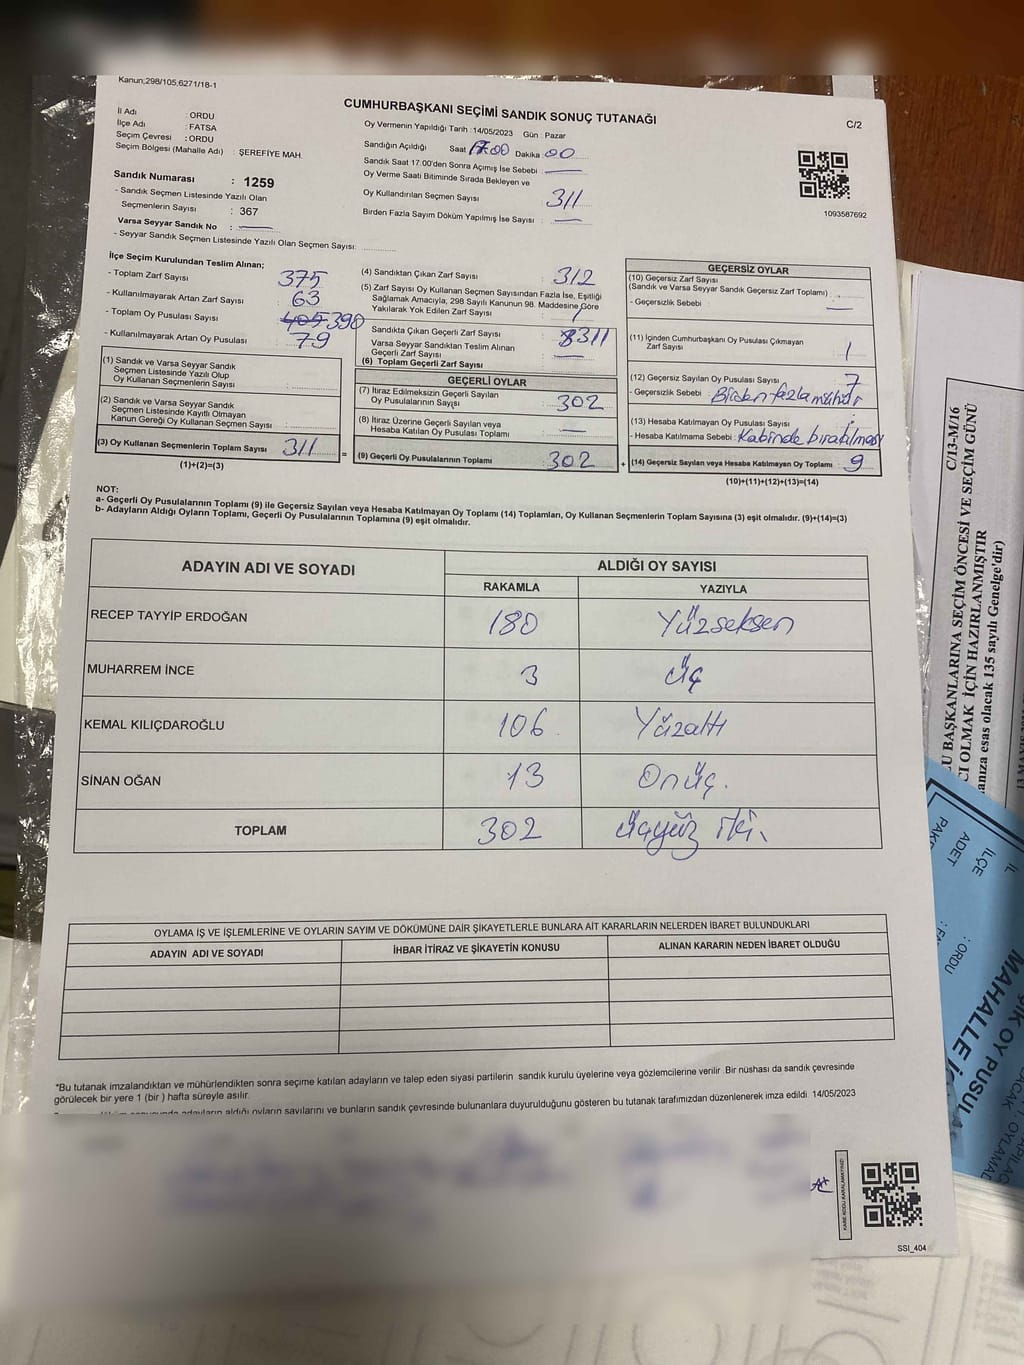 Kanun;298/105,6271/18-1
CUMHURBAŞKANI SEÇİMİ SANDIK SONUÇ TUTANAĞI
C/2
İl Adı : ORDU
İlçe Adı : FATSA
Seçim Çevresi : ORDU
Seçim Bölgesi (Mahalle Adı) : ŞEREFİYE MAH.
Sandık Numarası : 1259
- Sandık Seçmen Listesinde Yazılı Olan
Seçmenlerin Sayısı : 367
Varsa Seyyar Sandık No :
- Seyyar Sandık Seçmen Listesinde Yazılı Olan Seçmen Sayısı:
Oy Vermenin Yapıldığı Tarih :14/05/2023 Gün : Pazar
Sandığın Açıldığı Saat 17.00 Dakika 00
Sandık Saat 17.00'den Sonra Açımış İse Sebebi :
Oy Verme Saati Bitiminde Sırada Bekleyen ve
Oy Kullandırılan Seçmen Sayısı : 311
Birden Fazla Sayım Döküm Yapılmış İse Sayısı :
1093587692
İlçe Seçim Kurulundan Teslim Alınan;
- Toplam Zarf Sayısı : 375
- Kullanılmayarak Artan Zarf Sayısı : 63
- Toplam Oy Pusulası Sayısı : 405 390
- Kullanılmayarak Artan Oy Pusulası : 79
(1) Sandık ve Varsa Seyyar Sandık
Seçmen Listesinde Yazılı Olup
Oy Kullanan Seçmenlerin Sayısı :
(2) Sandık ve Varsa Seyyar Sandık
Seçmen Listesinde Kayıtlı Olmayan
Kanun Gereği Oy Kullanan Seçmen Sayısı :
(3) Oy Kullanan Seçmenlerin Toplam Sayısı : 311
(1)+(2)=(3)
=
(4) Sandıktan Çıkan Zarf Sayısı : 312
(5) Zarf Sayısı Oy Kullanan Seçmen Sayısından Fazla İse, Eşitliği
Sağlamak Amacıyla, 298 Sayılı Kanunun 98. Maddesine Göre
Yakılarak Yok Edilen Zarf Sayısı : 1
Sandıkta Çıkan Geçerli Zarf Sayısı : 311
Varsa Seyyar Sandıktan Teslim Alınan
Geçerli Zarf Sayısı :
(6) Toplam Geçerli Zarf Sayısı :
GEÇERLİ OYLAR
(7) İtiraz Edilmeksizin Geçerli Sayılan
Oy Pusulalarının Sayısı : 302
(8) İtiraz Üzerine Geçerli Sayılan veya
Hesaba Katılan Oy Pusulası Toplamı :
(9) Geçerli Oy Pusulalarının Toplamı : 302
+
GEÇERSİZ OYLAR
(10) Geçersiz Zarf Sayısı
(Sandık ve Varsa Seyyar Sandık Geçersiz Zarf Toplamı) :
- Geçersizlik Sebebi :
(11) İçinden Cumhurbaşkanı Oy Pusulası Çıkmayan
Zarf Sayısı : 1
(12) Geçersiz Sayılan Oy Pusulası Sayısı : 7
- Geçersizlik Sebebi : Birden fazla mühür
(13) Hesaba Katılmayan Oy Pusulası Sayısı :
- Hesaba Katılmama Sebebi : Kabinde bırakılması
(14) Geçersiz Sayılan veya Hesaba Katılmayan Oy Toplamı : 9
(10)+(11)+(12)+(13)=(14)
NOT:
a- Geçerli Oy Pusulalarının Toplamı (9) ile Geçersiz Sayılan veya Hesaba Katılmayan Oy Toplamı (14) Toplamları, Oy Kullanan Seçmenlerin Toplam Sayısına (3) eşit olmalıdır. (9)+(14)=(3)
b- Adayların Aldığı Oyların Toplamı, Geçerli Oy Pusulalarının Toplamına (9) eşit olmalıdır.
ADAYIN ADI VE SOYADI ALDIĞI OY SAYISI
RAKAMLA YAZIYLA
RECEP TAYYİP ERDOĞAN 180 Yüzseksen
MUHARREM İNCE 3 Üç
KEMAL KILIÇDAROĞLU 106 Yüzaltı
SİNAN OĞAN 13 Onüç.
TOPLAM 302 Üçyüz iki.
OYLAMA İŞ VE İŞLEMLERİNE VE OYLARIN SAYIM VE DÖKÜMÜNE DAİR ŞİKAYETLERLE BUNLARA AİT KARARLARIN NELERDEN İBARET BULUNDUKLARI
ADAYIN ADI VE SOYADI İHBAR İTİRAZ VE ŞİKAYETİN KONUSU ALINAN KARARIN NEDEN İBARET OLDUĞU
*Bu tutanak imzalandıktan ve mühürlendikten sonra seçime katılan adayların ve talep eden siyasi partilerin sandık kurulu üyelerine veya gözlemcilerine verilir .Bir nüshası da sandık çevresinde
görülecek bir yere 1 (bir ) hafta süreyle asılır.
adayların aldığı oyların sayılarını ve bunların sandık çevresinde bulunanlara duyurulduğunu gösteren bu tutanak tarafımızdan düzenlenerek imza edildi. 14/05/2023
SSI_404
C/13-M/16
BAŞKANLARINA SEÇİM ÖNCESİ VE SEÇİM GÜNÜ
OLMAK İÇİN HAZIRLANMIŞTIR
esas olacak 135 sayılı Genelge'dir)
İL : ORDU
İLÇE
ADET
OY PUSUL
MAHALLE